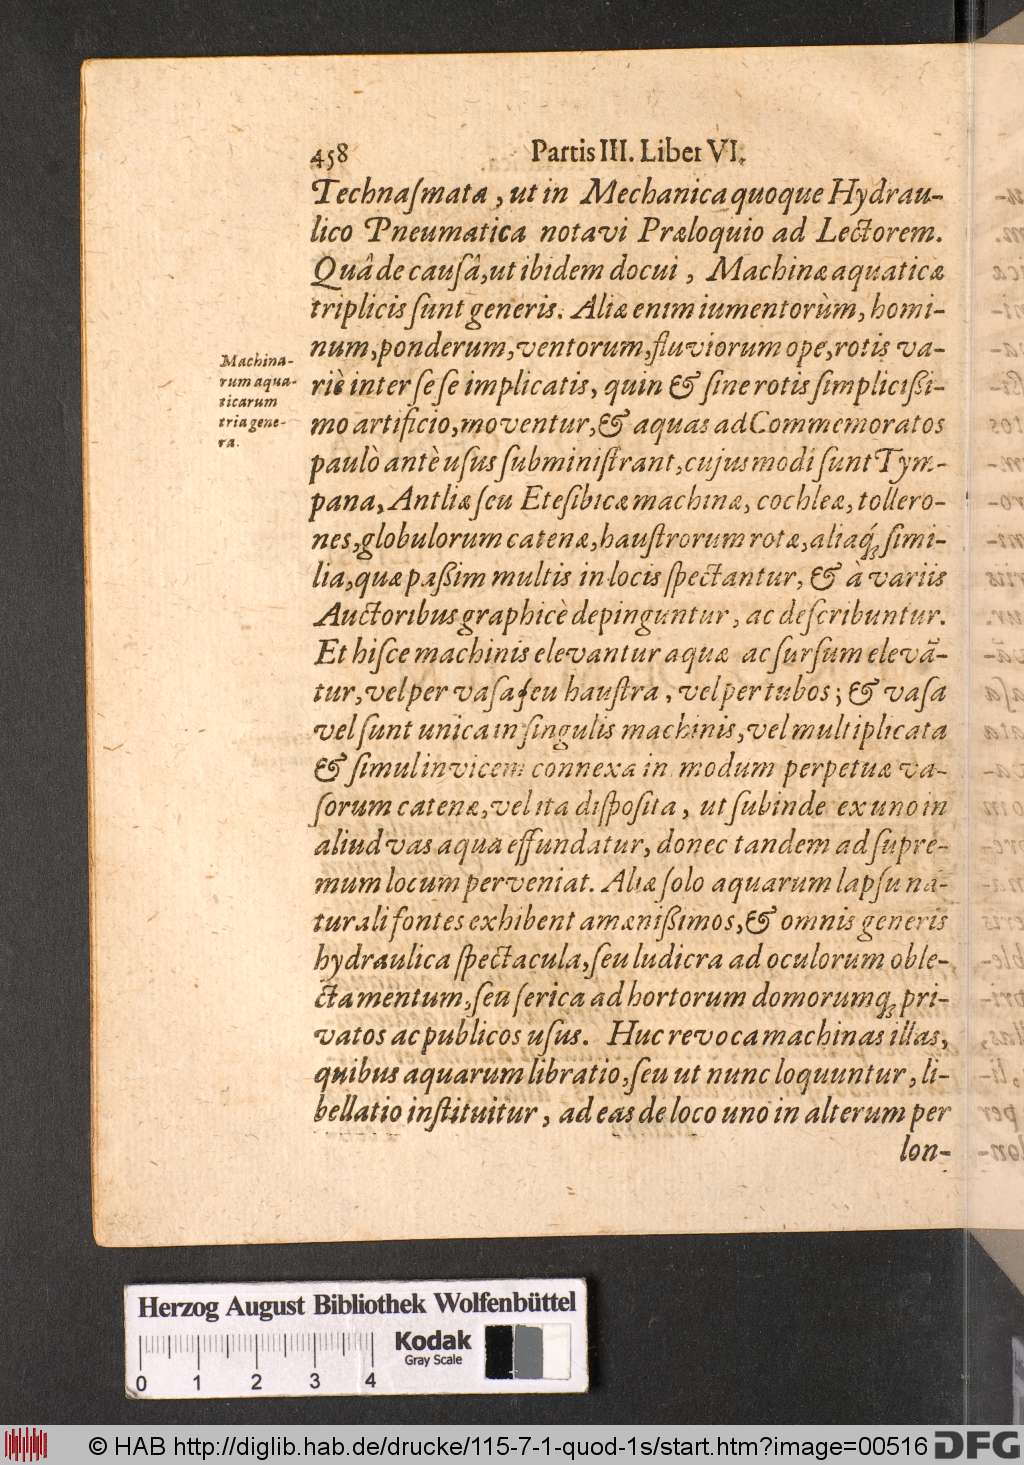 458
Partis III. Liber VI.
Technaſmata, ut in Mechanica quoque Hydrau-
lico Pneumatica notavi Præloquio ad Lectorem.
Quâ de cauſâ, ut ibidem docui, Machinæ aquaticæ
triplicis ſunt generis. Aliæ enim iumentorùm, homi-
num, ponderum, ventorum, fluviorum ope, rotis va-
riè inter ſe ſe implicatis, quin & ſine rotis ſimpliciſſi-
mo artificio, moventur, & aquas ad Commemoratos
paulò antè uſus ſubminiſtrant, cujusmodi ſunt Tym-
pana, Antliæ ſeu Eteſibicæ machinæ, cochleæ, tollero-
nes, globulorum catenæ, hauſtrorum rotæ, aliaq́; ſimi-
lia, quæ paßim multis in locis ſpectantur, & à variis
Auctoribus graphicè depinguntur, ac deſcribuntur.
Et hiſce machinis elevantur aquæ ac ſurſum elevã-
tur, vel per vaſa ſeu hauſtra, vel per tubos; & vaſa
vel ſunt unica in ſingulis machinis, vel multiplicata
& ſimul invicem connexa in modum perpetuæ va-
ſorum catenæ, vel ita diſpoſita, ut ſubinde ex uno in
aliud vas aqua effundatur, donec tandem ad ſupre-
mum locum perveniat. Aliæ ſolo aquarum lapſu na-
turali fontes exhibent amæniſſimos, & omnis generis
hydraulica ſpectacula, ſeu ludicra ad oculorum oble-
ctamentum, ſeu ſerica ad hortorum domorumq; pri-
vatos ac publicos uſus. Huc revoca machinas illas,
quibus aquarum libratio, ſeu ut nunc loquuntur, li-
bellatio inſtituitur, ad eas de loco uno in alterum per
lon-
Machina-
rum aqua-
ticarum
tria gene-
ra.
Herzog August Bibliothek Wolfenbüttel
Kodak
Gray Scale
0 1 2 3 4
© HAB http://diglib.hab.de/drucke/115-7-1-quod-1s/start.htm?image=00516
DFG